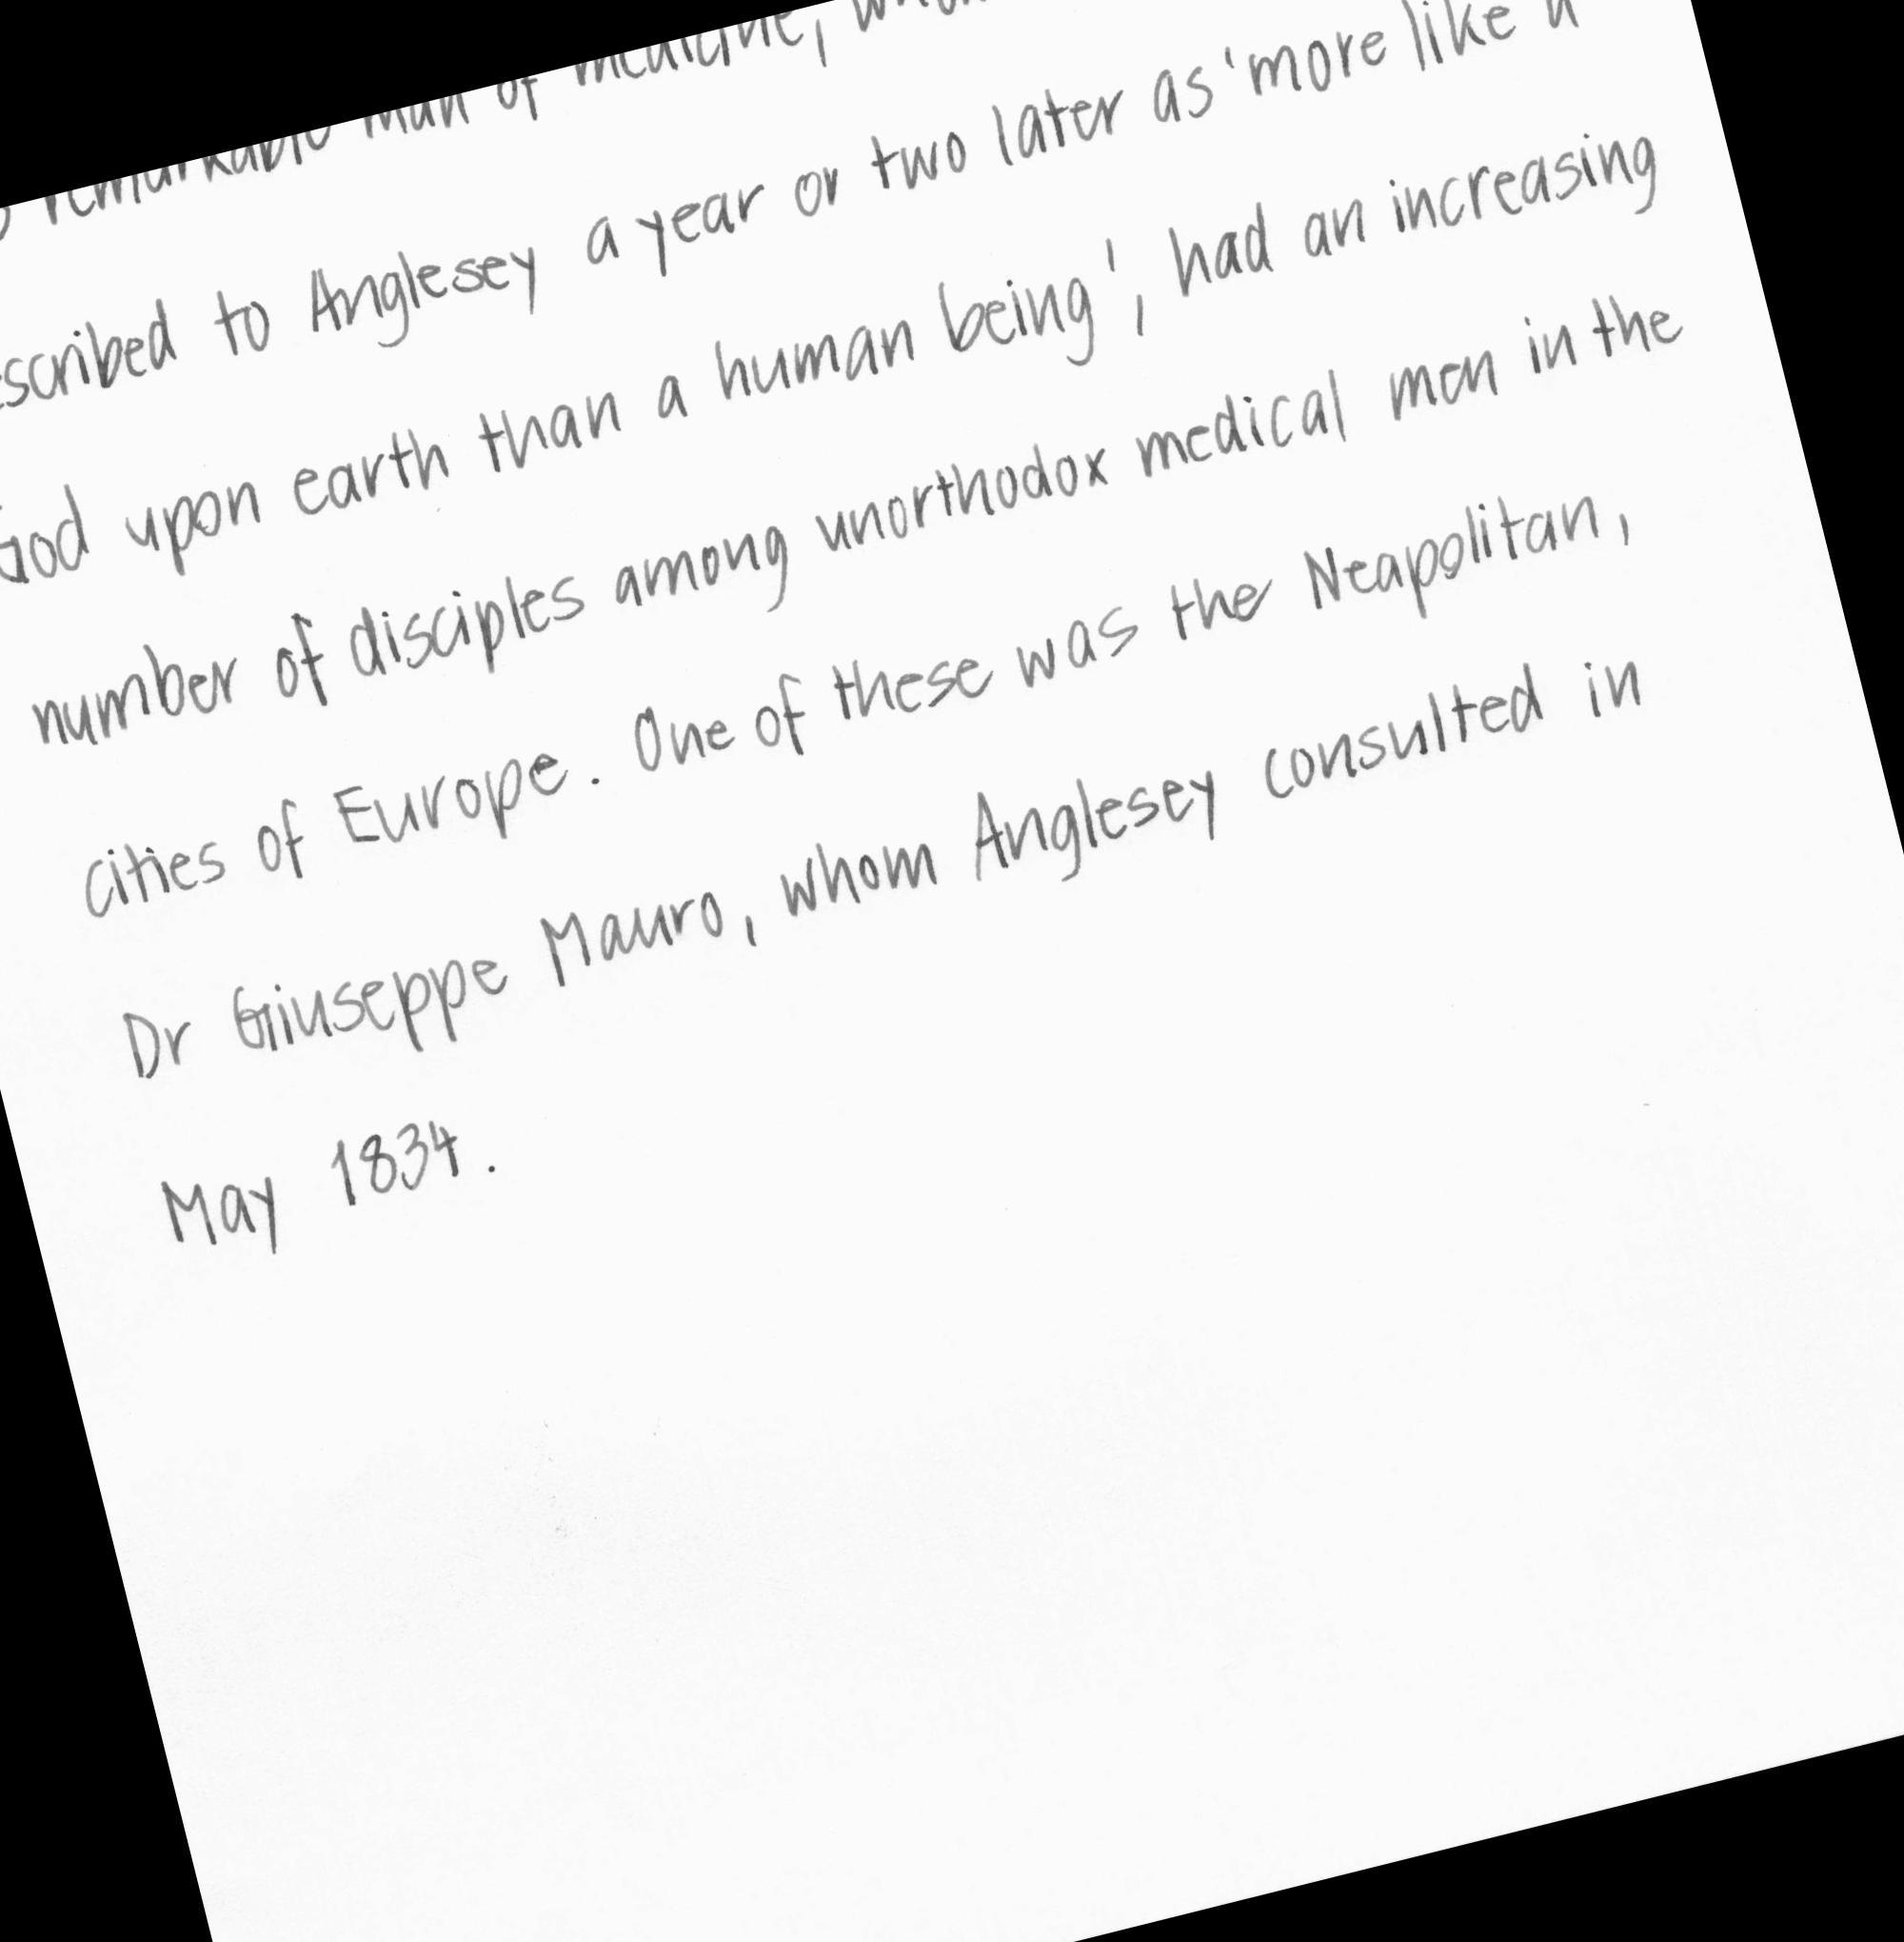 remarkable man of medicine,
scribed to Anglesey a year or two later as 'more like a
God upon earth than a human being', had an increasing
number of disciples among unorthodox medical men in the
cities of Europe. One of these was the Neapolitan,
Dr Giuseppe Mauro, whom Anglesey consulted in
May 1834.